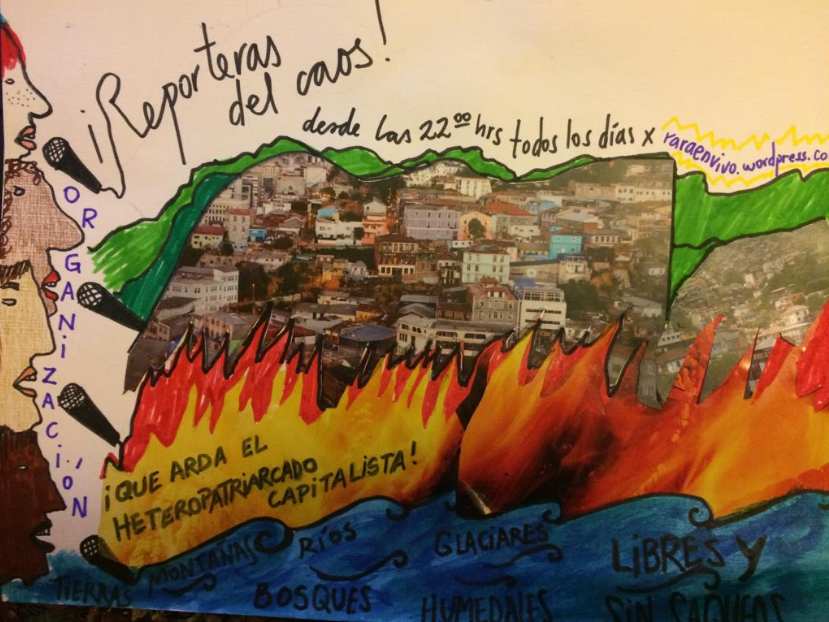 ¡Reporteras
del caos!
desde las 22⁰⁰ hrs todos los días x
raraenvivo.wordpress.co
ORGANIZACIÓN
¡QUE ARDA EL
HETEROPATRIARCADO
CAPITALISTA!
TIERRAS MONTAÑAS RÍOS GLACIARES LIBRES Y
BOSQUES HUMEDALES SIN SAQUEOS